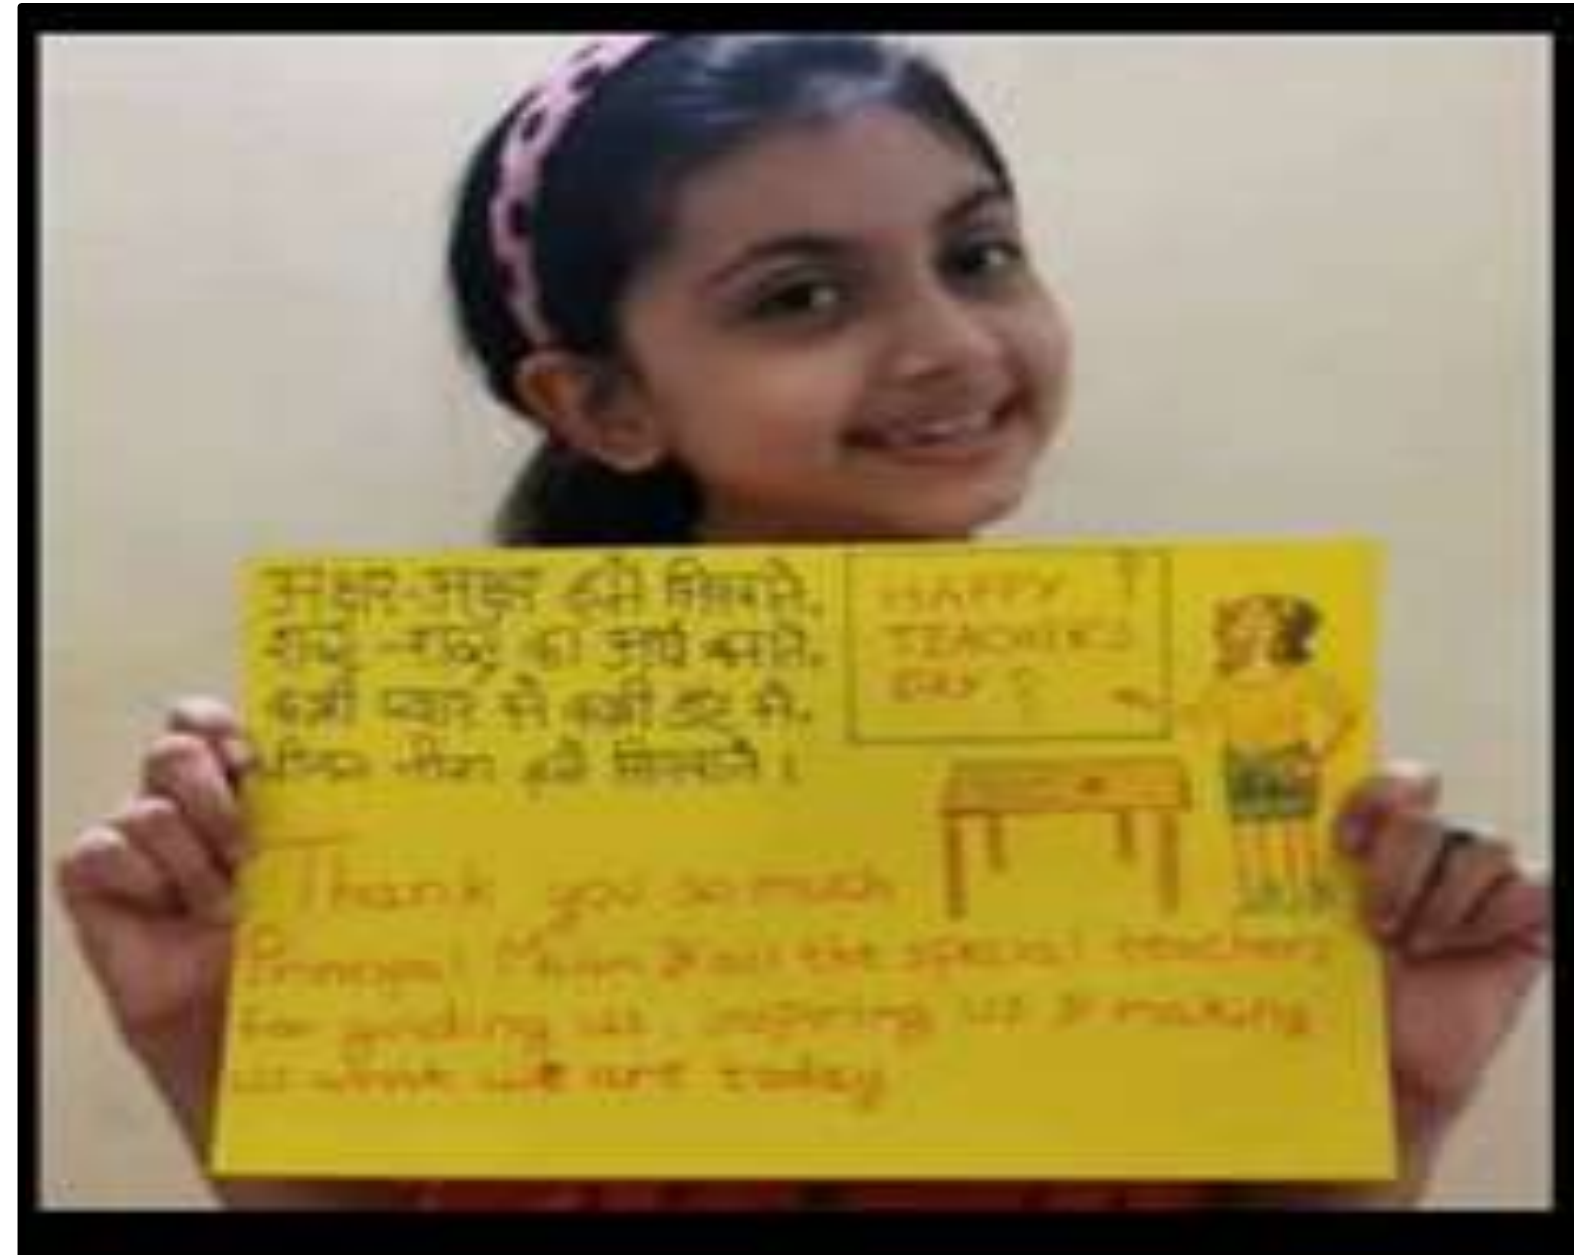 अक्षर-अक्षर हमें सिखाते,
शब्द-शब्द का अर्थ बताते,
कभी प्यार से कभी डांट से,
जीवन जीना हमें सिखाते।
HAPPY
TEACHERS
DAY
Thank you so much
Principal Mam & all the special teachers
for guiding us, inspiring us & making
us what we are today